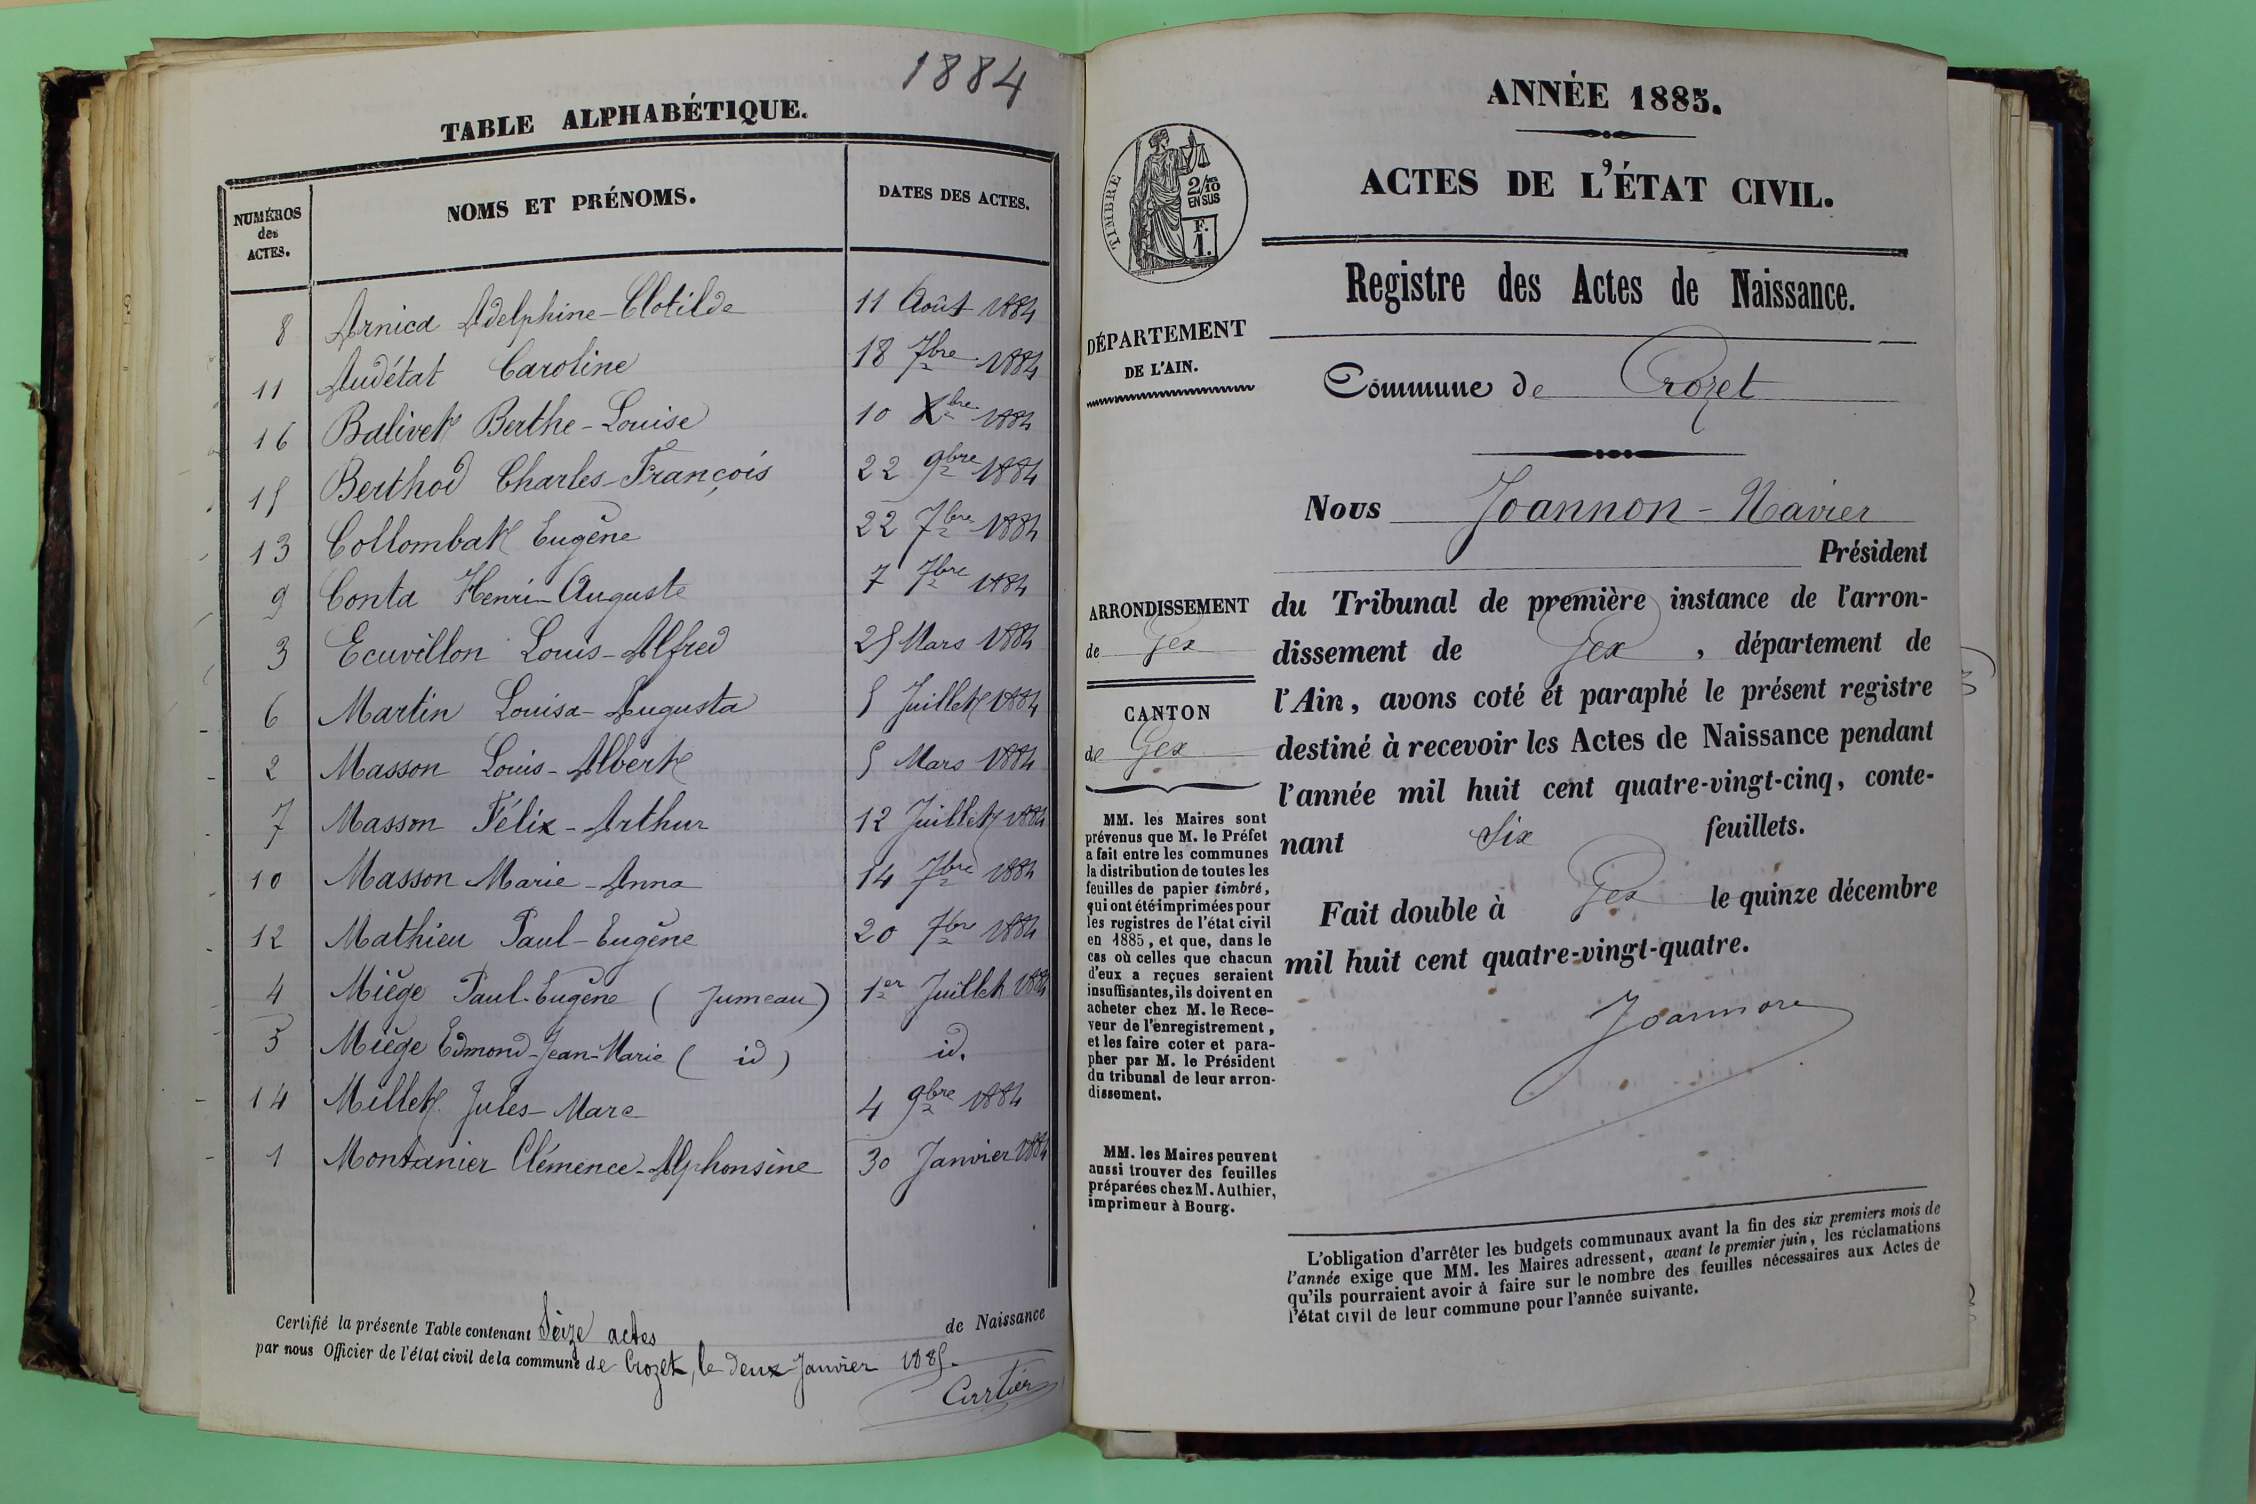 1884
TABLE ALPHABÉTIQUE.
NUMÉROS
des
ACTES.
NOMS ET PRÉNOMS.
DATES DES ACTES.
8 Arnica Adelphine-Clotilde 11 Août 1884
11 Audétat Caroline 18 7bre 1884
16 Balivet Berthe-Louise 10 Xbre 1884
15 Berthod Charles-François 22 9bre 1884
13 Collombat Eugène 22 7bre 1884
9 Conta Henri-Auguste 7 7bre 1884
3 Ecuvillon Louis-Alfred 25 Mars 1884
6 Martin Louisa-Augusta 5 Juillet 1884
2 Masson Louis-Albert 5 Mars 1884
7 Masson Félix-Arthur 12 Juillet 1884
10 Masson Marie-Anna 14 7bre 1884
12 Mathieu Paul-Eugène 20 7bre 1884
4 Miège Paul-Eugène (Jumeau) 1er Juillet 1884
5 Miège Edmond-Jean-Marie (id) id.
14 Millet Jules-Marc 4 9bre 1884
1 Montanier Clémence-Alphonsine 30 Janvier 1884
Certifié la présente Table contenant Seize actes de Naissance
par nous Officier de l'état civil de la commune de Crozet, le deux Janvier 1885.
Carrtier
ANNÉE 1885.
ACTES DE L'ÉTAT CIVIL.
TIMBRE
2/10
EN SUS
F.
1.
Registre des Actes de Naissance.
DÉPARTEMENT
DE L'AIN.
Commune de Crozet
Nous Joannon-Navier
Président
ARRONDISSEMENT
de Gex
CANTON
de Gex
du Tribunal de première instance de l'arron-
dissement de Gex, département de
l'Ain, avons coté et paraphé le présent registre
destiné à recevoir les Actes de Naissance pendant
l'année mil huit cent quatre-vingt-cinq, conte-
nant Six feuillets.
Fait double à Gex le quinze décembre
mil huit cent quatre-vingt-quatre.
Joannon
MM. les Maires sont
prévenus que M. le Préfet
a fait entre les communes
la distribution de toutes les
feuilles de papier timbré,
qui ont été imprimées pour
les registres de l'état civil
en 1885, et que, dans le
cas où celles que chacun
d'eux a reçues seraient
insuffisantes, ils doivent en
acheter chez M. le Rece-
veur de l'enregistrement,
et les faire coter et para-
pher par M. le Président
du tribunal de leur arron-
dissement.
MM. les Maires peuvent
aussi trouver des feuilles
préparées chez M. Authier,
imprimeur à Bourg.
L'obligation d'arrêter les budgets communaux avant la fin des six premiers mois de
l'année exige que MM. les Maires adressent, avant le premier juin, les réclamations
qu'ils pourraient avoir à faire sur le nombre des feuilles nécessaires aux Actes de
l'état civil de leur commune pour l'année suivante.